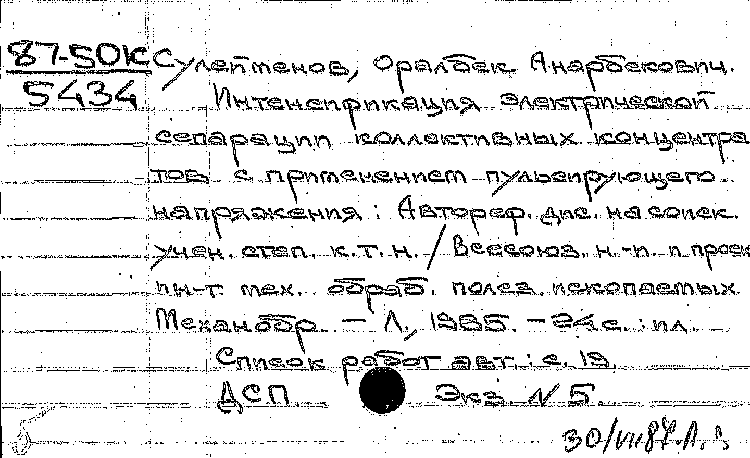 87-50К Сулейменов, Оралбек Анарбекович.
5434 Интенсификация электрической
сепарации коллективных концентра
тов с применением пульсирующего
напряжения : Автореф. дис. на соиск.
учен. степ. к.т.н. / Всесоюз. н.-и. и проек
ин-т. мех. обраб. полез. ископаемых
Механобр. — Л., 1985. — 24 с. : ил.
Список работ авт. : с. 19.
ДСП Экз. N 5.